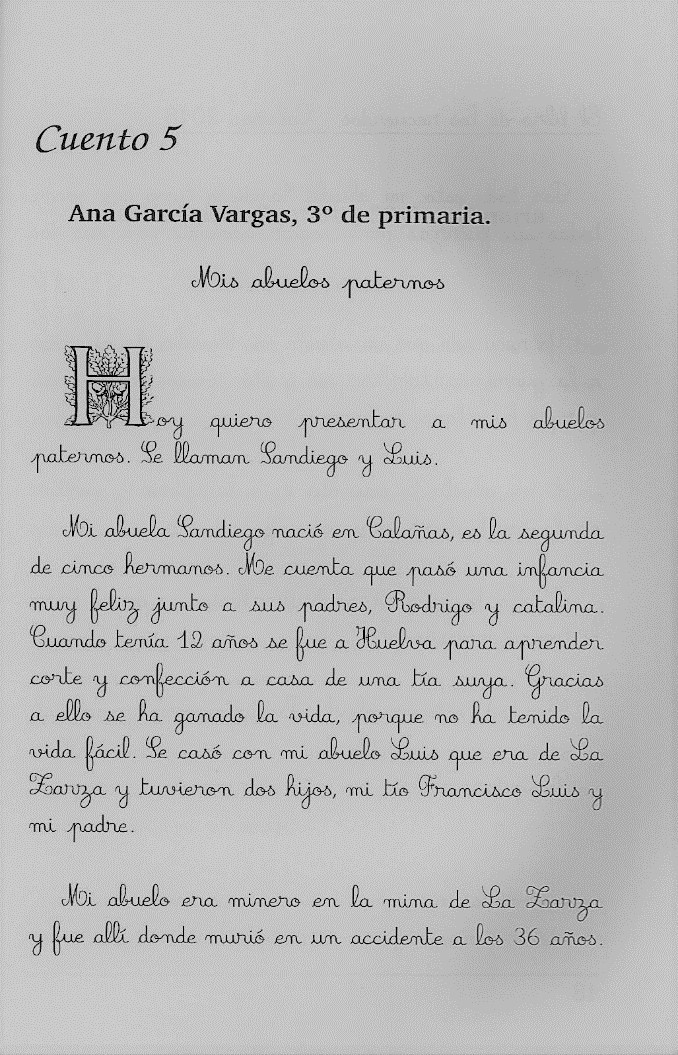 Cuento 5
Ana García Vargas, 3º de primaria.
Mis abuelos paternos
Hoy quiero presentar a mis abuelos
paternos. Se llaman Sandiego y Luis.
Mi abuela Sandiego nació en Calañas, es la segunda
de cinco hermanos. Me cuenta que pasó una infancia
muy feliz junto a sus padres, Rodrigo y catalina.
Cuando tenía 12 años se fue a Huelva para aprender
corte y confección a casa de una tía suya. Gracias
a ello se ha ganado la vida, porque no ha tenido la
vida fácil. Se casó con mi abuelo Luis que era de La
Zarza y tuvieron dos hijos, mi tío Francisco Luis y
mi padre.
Mi abuelo era minero en la mina de La Zarza
y fue allí donde murió en un accidente a los 36 años.